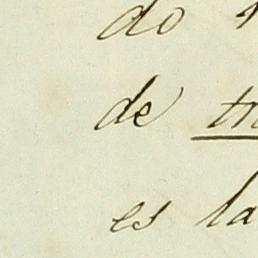 do
de
es la